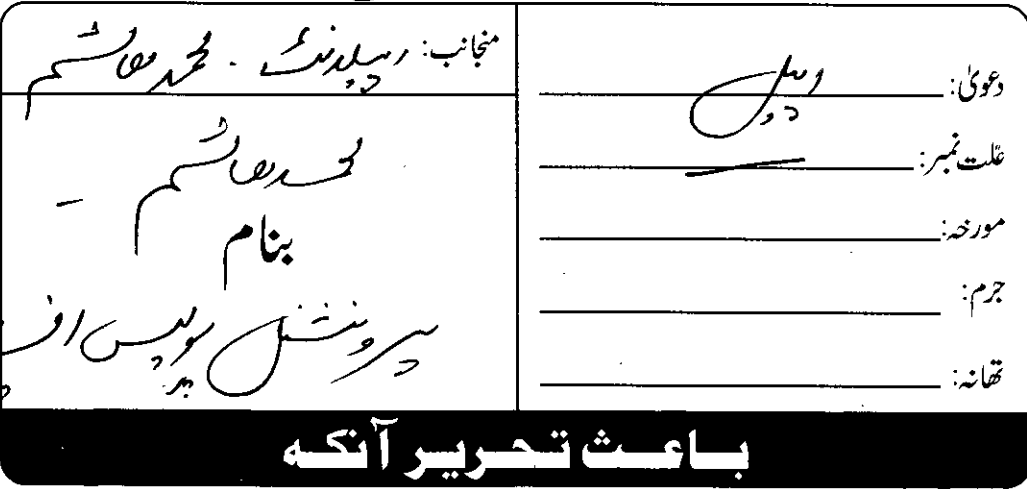 دعویٰ: اپیل
علت نمبر:
مورخہ:
جرم:
تھانہ:
منجانب: محمد ہاشم
محمد ہاشم
بنام
پرونشل پولیس اف
باعث تحریر آنکہ